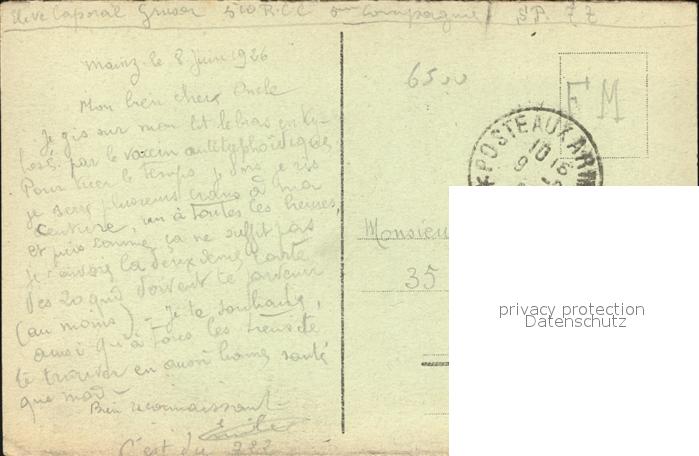 Elève Caporal Grusor 510 R.C.C. Compagnie S.P. 77
Mainz le 8 Juin 1926
Mon bien cher Oncle
Je gis sur mon lit le bras
par le vaccin antityphoïdique
Pour tuer le temps je dors, je ris
je serre plusieurs crans à ma
ceinture, un à toutes les heures,
et puis comme ça ne suffit pas
je t'envoie la deuxième carte
des 20 qui doivent te parvenir
(au moins) - Je te souhaite,
ainsi qu'à tous les tiens de
te trouver en aussi bonne santé
que moi
Bien reconnaissant
C'est du 222
6500
FM
POSTE AUX ARM
10 15
9
Monsieur
35
privacy protection
Datenschutz